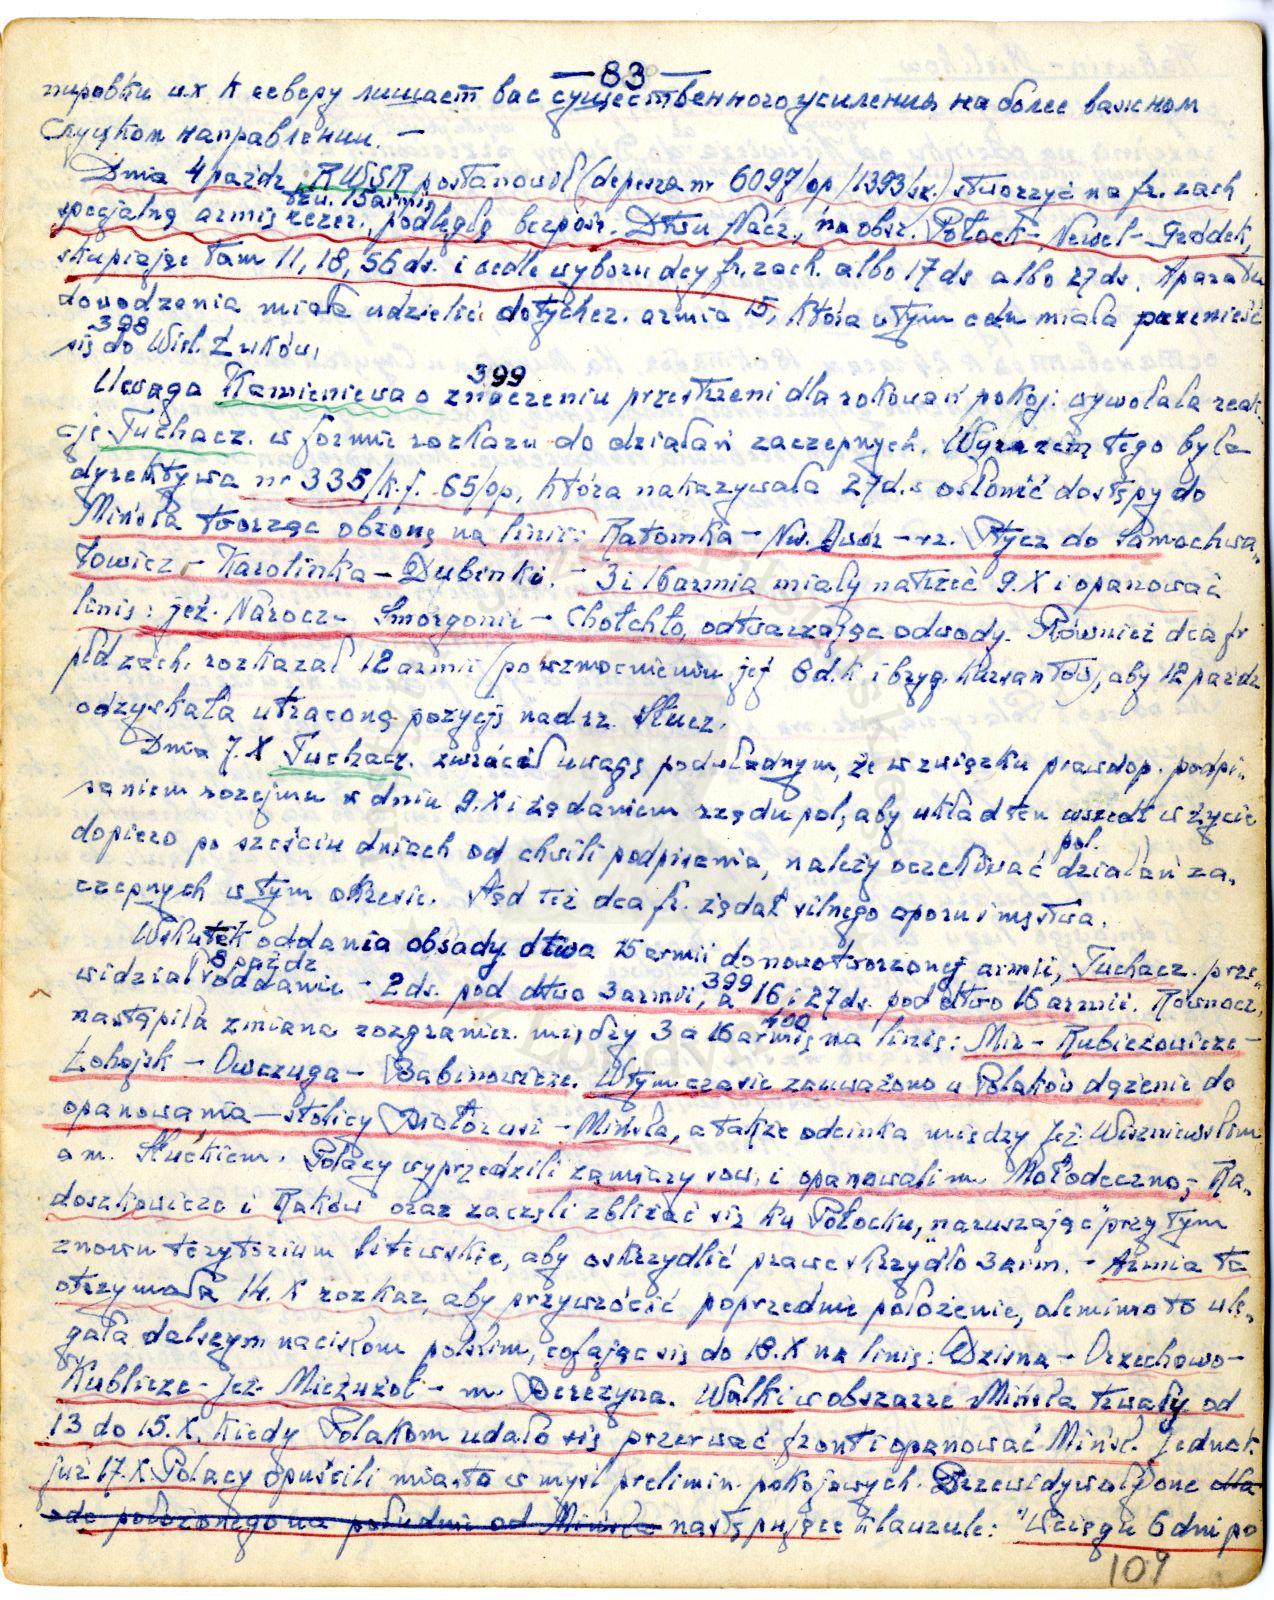 — 83 —
тировки их к северу лишает вас существенного усиления на более важном
Слуцком направлении. —
Dnia 4 paźdz. RWSR postanowił (depesza nr 6097/op/1393/sk.) stworzyć na fr. zach
specjalną armię rezer., podległą bezpośr. Dtwu Nacz., na obsz. Połock - Newel - Gródek,
tzw. 15 armię
skupiając tam 11, 18, 56 ds. i wedle wyboru dcy fr. zach. albo 17 ds albo 27 ds. Aparatu
dowodzenia miała udzielić dotychcz. armia 15, która w tym celu miała przenieść
się do Wiel. Łuków. 398
Uwaga Kamieniewa o znaczeniu przestrzeni dla rokowań pokoj. wywołała reak-
399
cję Tuchacz. w formie rozkazu do działań zaczepnych. Wyrazem tego była
dyrektywa nr 335/k.f. 65/op, która nakazywała 27 d.s osłonić dostępy do
Mińska tworząc obronę na linii: Ratomka — Nw. Dwór — rz. Ptycz do Samochwa-
łowicz - Karolinka — Dubinki. — 3 i 16 armia miały natrzeć 9.X i opanować
linię: jez. Narocz - Smorgonie — Chołchło, odtwarzając odwody. Również dca fr
płd zach. rozkazał 12 armii (po wzmocnieniu jej 8 d.k. i bryg. kursantów), aby 12 paźdz
odzyskała utraconą pozycję nad rz. Słucz.
Dnia 7.X Tuchacz. zwrócił uwagę podwładnym, że w związku prawdop. podpi-
saniem rozejmu w dniu 9.X i żądaniem rządu pol., aby układ ten wszedł w życie
dopiero po sześciu dniach od chwili podpisania, należy oczekiwać działań za-
pol.
czepnych w tym okresie. Stąd też dca fr. żądał silnego oporu i męstwa.
Wskutek oddania obsady dtwa 15 armii do nowotworzonej armii, Tuchacz. prze-
8 paźdz
widział oddanie - 2 ds. pod dtwo 3 armii, a 16 i 27 ds. pod dtwo 16 armii. Równocz.
399
nastąpiła zmiana rozgranicz. między 3 a 16 armią na linię: Mir - Rubieżewicze -
400
Łohojsk — Owczuga — Babinowicze. W tym czasie zauważono u Polaków dążenie do
opanowania — stolicy Białorusi - Mińska, a także odcinka między Jez. Wiszniewskim
a m. Słuckiem. Polacy wyprzedzili zamiary sow. i opanowali m. Mołodeczno, Ra-
doszkowicze i Raków oraz zaczęli zbliżać się ku Połocku, „naruszając” przy tym
znowu terytorium litewskie, aby oskrzydlić prawe skrzydło 3 arm. — Armia ta
otrzymała 14.X rozkaz, aby przywrócić poprzednie położenie, ale mimo to ule-
gała dalszym naciskom polskim, cofając się do 18.X na linię: Dzisna — Orzechowo —
Kublicze - jez. Mieżużoł — m. Berezyna. Walki w obszarze Mińska trwały od
13 do 15.X, kiedy Polakom udało się przerwać front i opanować Mińsk. Jednak
już 17.X Polacy opuścili miasto w myśl prelimin. pokojowych. Przewidywały one dla
ode położonego na południe od Mińska następujące klauzule: "W ciągu 6 dni po
109